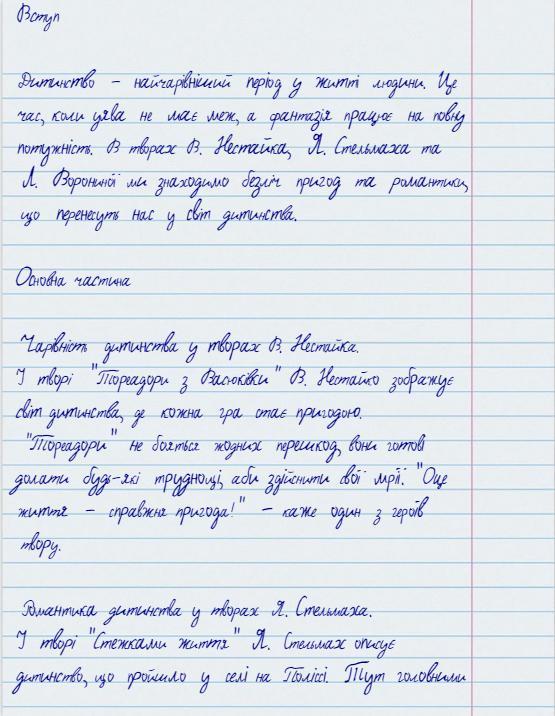 Вступ
Дитинство – найчарівніший період у житті людини. Це
час, коли уява не має меж, а фантазія працює на повну
потужність. В творах В. Нестайка, Я. Стельмаха та
Л. Ворониної ми знаходимо безліч пригод та романтики,
що перенесуть нас у світ дитинства.
Основна частина
Чарівність дитинства у творах В. Нестайка.
І творі "Тореадори з Васюківки" В. Нестайко зображує
світ дитинства, де кожна гра стає пригодою.
"Тореадори" не бояться жодних перешкод, вони готові
долати будь-які труднощі, аби здійснити свої мрії. "Оце
життя – справжня пригода!" – каже один з героїв
твору.
Романтика дитинства у творах Я. Стельмаха.
І творі "Стежками життя" Я. Стельмах описує
дитинство, що пройшло у селі на Поліссі. Тут головними